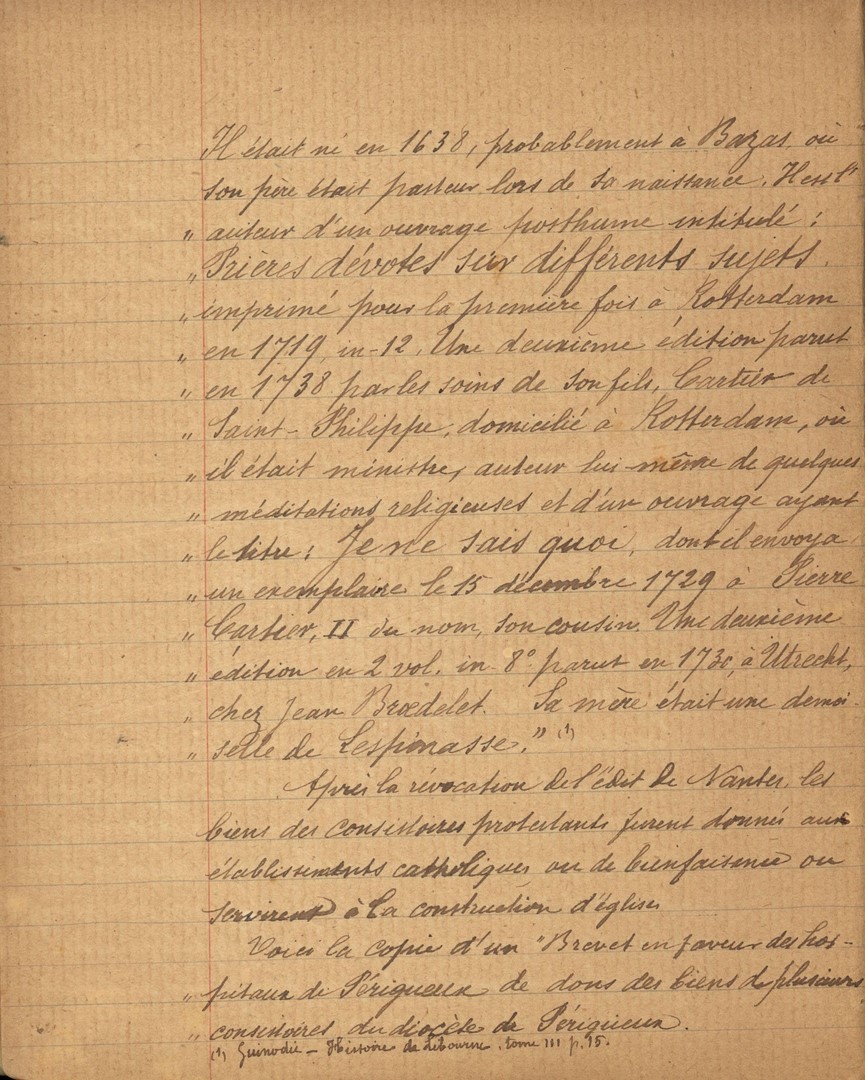 Il était né en 1638, probablement à Bazas, où
son père était pasteur lors de sa naissance. Il est l'
„ auteur d'un ouvrage posthume intitulé :
„ Prières dévotes sur différents sujets,
„ imprimé pour la première fois à Rotterdam
„ en 1719, in-12. Une deuxième édition parut
„ en 1738 par les soins de son fils, Cartier de
„ Saint-Philippe, domicilié à Rotterdam, où
„ il était ministre, auteur lui-même de quelques
„ méditations religieuses et d'un ouvrage ayant
„ le titre : Je ne sais quoi, dont il envoya
„ un exemplaire le 15 décembre 1729 à Pierre
„ Cartier, II du nom, son cousin. Une deuxième
„ édition en 2 vol. in 8° parut en 1730, à Utrecht,
„ chez Jean Broedelet. Sa mère était une demoi-
„ selle de Lespinasse." (1)
Après la révocation de l'édit de Nantes, les
biens des consistoires protestants furent donnés aux
établissements catholiques ou de bienfaisance ou
servirent à la construction d'églises
Voici la copie d'un "Brevet en faveur des hos-
„ pitaux de Périgueux de dons des biens de plusieurs
„ consistoires du diocèse de Périgueux.
(1) Guinodie - Histoire de Libourne. tome III p. 95.